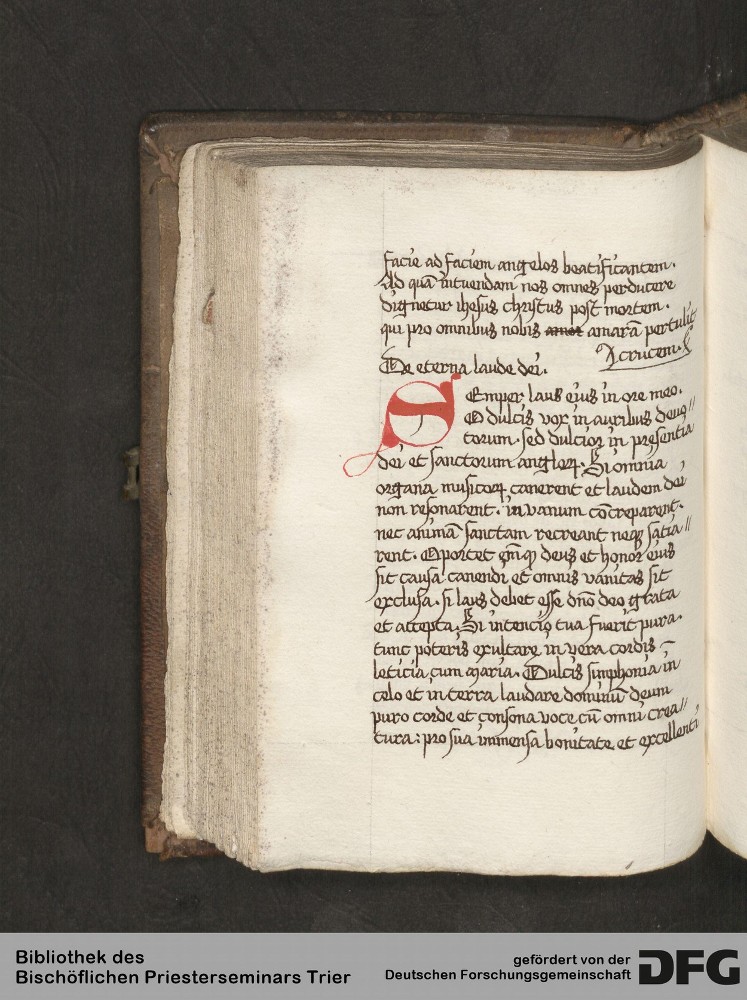 facie ad faciem angelos beatificantem.
Ad quā intuendam nos omnes perducere
dignetur ihesus christus post mortem.
qui pro omnibus nobis amar amarā pertulit
crucem.
De eterna laude dei.
SEmper laus eius in ore meo.
O dulcis vox in auribus deuo//
torum. sed dulcior in presentia
dei et sanctorum angloꝝ. Si omnia
organa musicoꝝ canerent et laudem dei
non resonarent. in vanum cōcreparent.
nec animā sanctam recreant neqꝫ satia//
rent. Oportet g̅ qꝫ deus et honor eius
sit causa canendi et omnis vanitas sit
exclusa. si laus debet esse dn̄o deo grata
et accepta. Si intencio tua fuerit pura.
tunc poteris exultare in vera cordis
leticia cum maria. Dulcis simphonia in
celo et in terra laudare dominū deum
puro corde et consona voce cū omni crea//
tura: pro sua immensa bonitate et excellenti
Bibliothek des
Bischöflichen Priesterseminars Trier
gefördert von der
Deutschen Forschungsgemeinschaft DFG